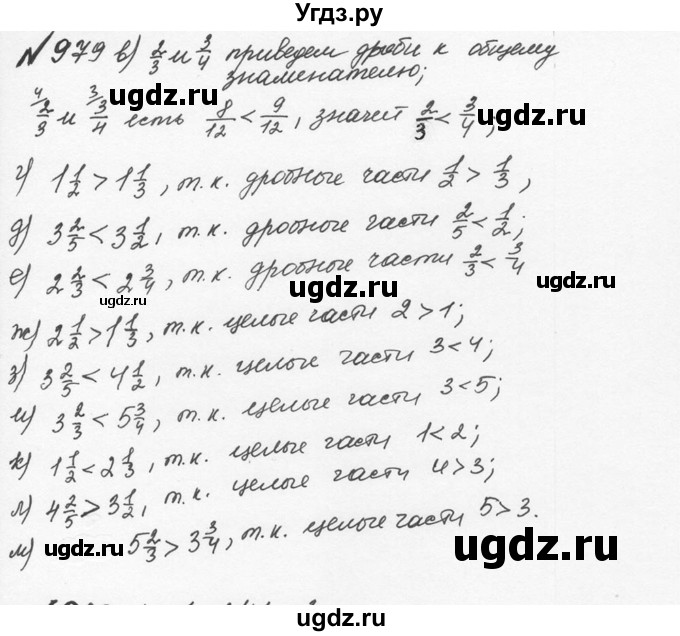 Угдз.ру
№979 в) 2/3 и 3/4 приведем дроби к общему
знаменателю;
4/ 2/3 и 3/ 3/4 есть 8/12 < 9/12, значит 2/3 < 3/4;
г) 1 1/2 > 1 1/3, т.к. дробные части 1/2 > 1/3,
д) 3 2/5 < 3 1/2, т.к. дробные части 2/5 < 1/2;
е) 2 2/3 < 2 3/4, т.к. дробные части 2/3 < 3/4
ж) 2 1/2 > 1 1/3, т.к. целые части 2 > 1;
з) 3 2/5 < 4 1/2, т.к. целые части 3 < 4;
и) 3 2/3 < 5 3/4, т.к. целые части 3 < 5;
к) 1 1/2 < 2 1/3, т.к. целые части 1 < 2;
л) 4 2/5 > 3 1/2, т.к. целые части 4 > 3;
м) 5 2/3 > 3 3/4, т.к. целые части 5 > 3.
ugdz.ru
ugdz.ru
ugdz.ru
ugdz.ru
ugdz.ru
ugdz.ru
ugdz.ru
ugdz.ru
ugdz.ru
ugdz.ru
ugdz.ru
ugdz.ru